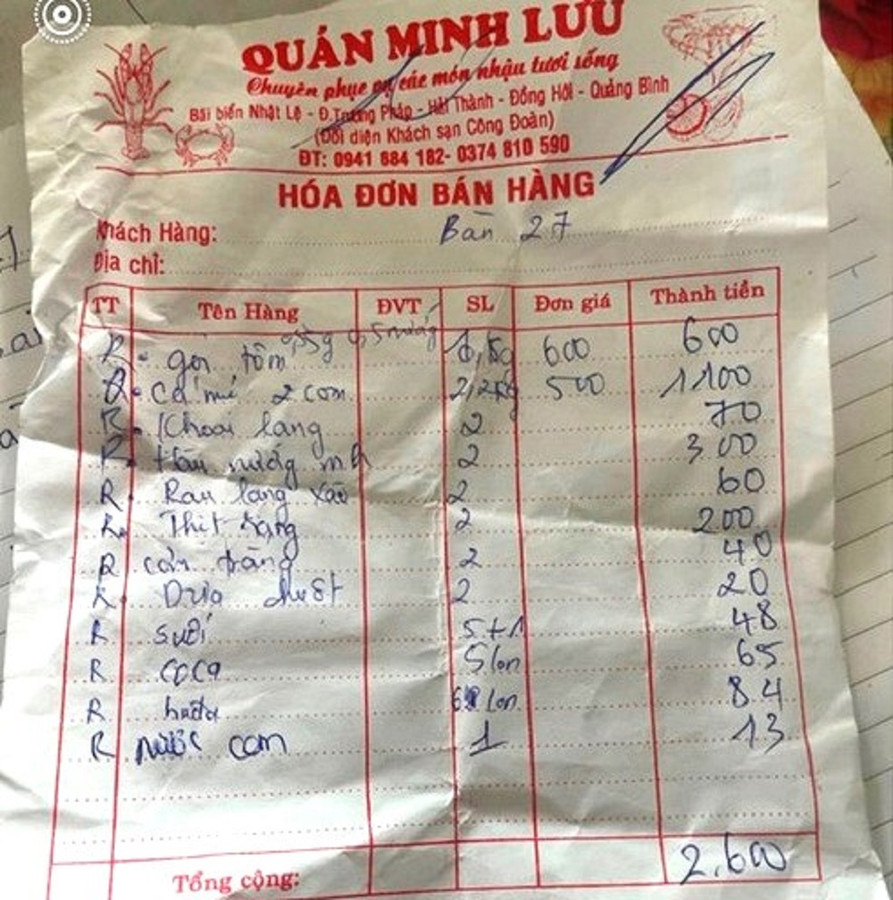 QUÁN MINH LƯU
Chuyên phục vụ các món nhậu tươi sống
Bãi biển Nhật Lệ - Đ.Trương Pháp - Hải Thành - Đồng Hới - Quảng Bình
(Đối diện Khách sạn Công Đoàn)
ĐT: 0941 884 182- 0374 810 590
HÓA ĐƠN BÁN HÀNG
Khách Hàng: Bàn 27
Địa chỉ:
TT Tên Hàng ĐVT SL Đơn giá Thành tiền
R gỏi tôm 600 600
R cá mú 2 con 2,2kg 500 1100
R Khoai lang 2 70
R Hàu nướng mh 2 300
R Rau lang xào 2 60
R Thịt 2 200
R cơm trắng 2 40
R Dưa chuột 2 20
R suối 5+1 48
R coca 5 lon 65
R huda lon 84
R nước cam 1 13
Tổng cộng: 2,600